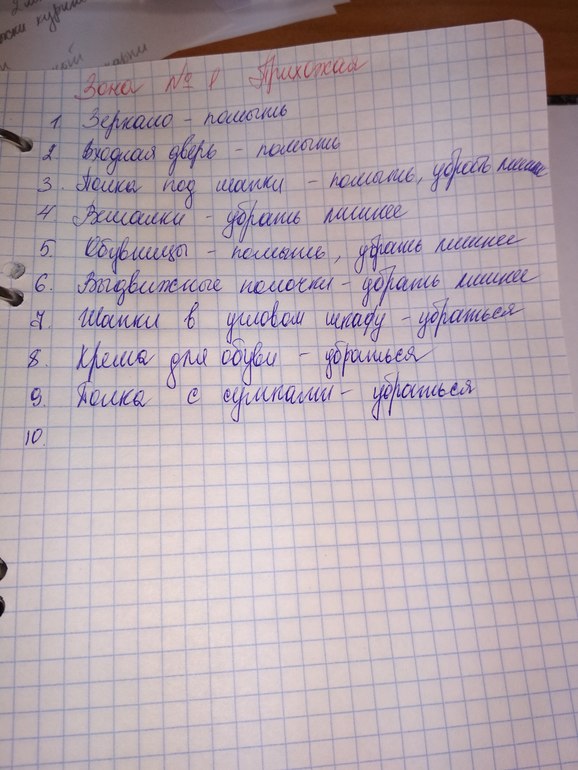 Зона № 1 Прихожая
1. Зеркало - помыть
2. Входная дверь - помыть
3. Полка под шапки - помыть, убрать лишнее
4. Вешалки - убрать лишнее
5. Обувницы - помыть, убрать лишнее
6. Выдвижные полочки - убрать лишнее
7. Шапки в угловом шкафу - убраться
8. Крема для обуви - убраться
9. Полка с сумками - убраться
10.